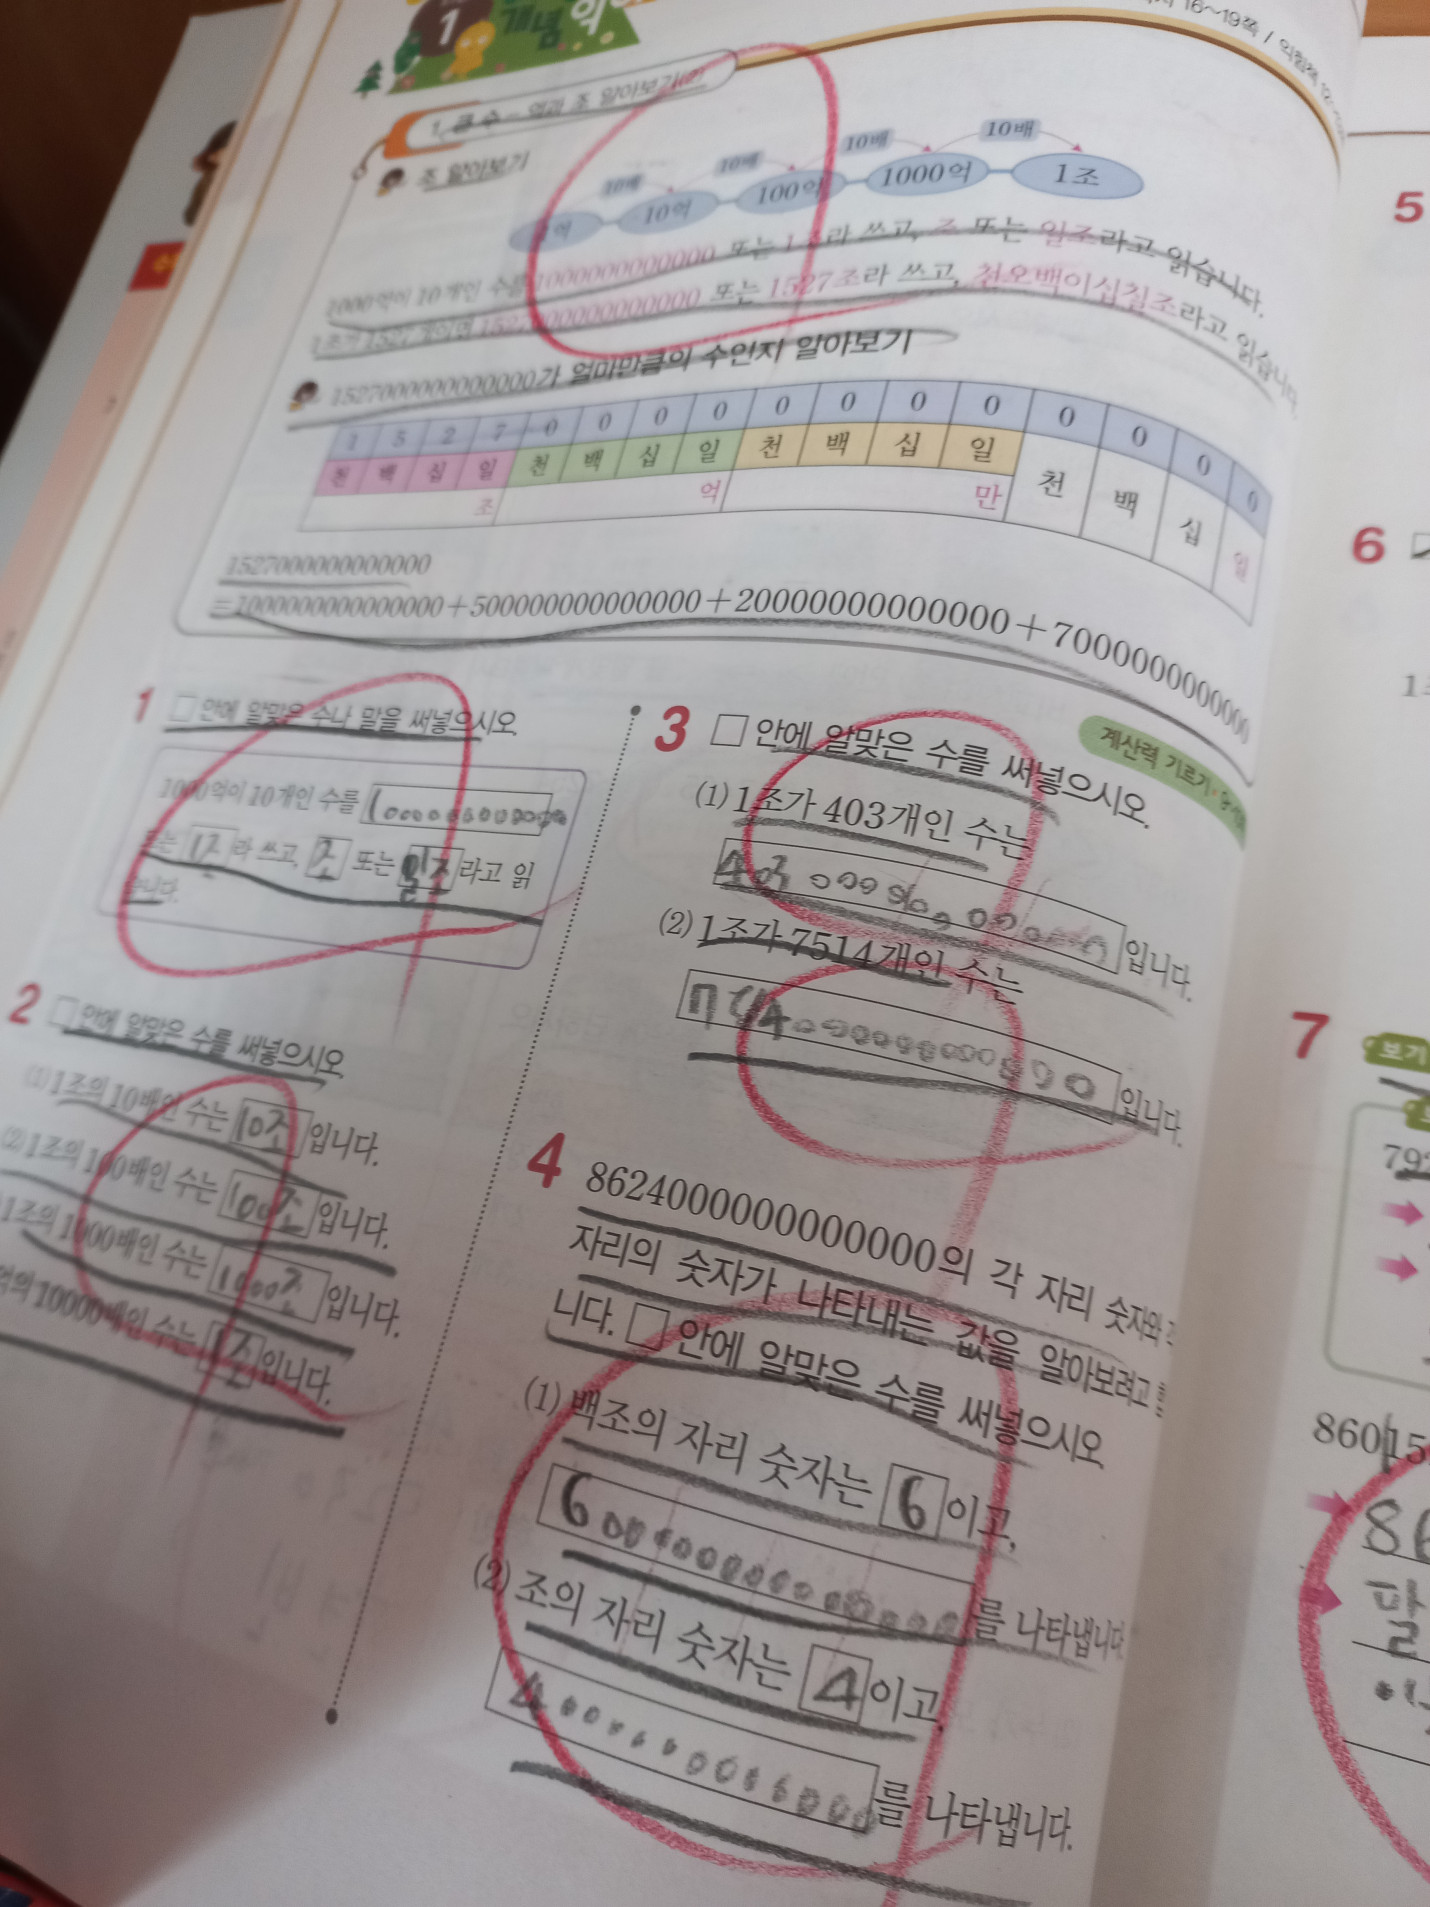 1 개념
16~19쪽 / 익힘책
1. 큰 수 - 억과 조 알아보기(2)
조 알아보기
10배 10배 10배 10배
1억 10억 100억 1000억 1조
1000억이 10개인 수를 1000000000000 또는 1조라 쓰고, 조 또는 일조라고 읽습니다.
1조가 1527개이면 1527000000000000 또는 1527조라 쓰고, 천오백이십칠조라고 읽습니다.
1527000000000000가 얼마만큼의 수인지 알아보기
1 5 2 7 0 0 0 0 0 0 0 0 0 0 0 0
천 백 십 일 천 백 십 일 천 백 십 일 천 백 십 일
조 억 만
1527000000000000
=1000000000000000+500000000000000+20000000000000+7000000000000
1 □ 안에 알맞은 수나 말을 써넣으시오.
1000억이 10개인 수를 1000000000000
또는 1조라 쓰고, 조 또는 일조라고 읽
습니다.
2 □ 안에 알맞은 수를 써넣으시오.
(1) 1조의 10배인 수는 10조입니다.
(2) 1조의 100배인 수는 100조입니다.
1조의 1000배인 수는 1000조입니다.
억의 10000배인 수는 1조입니다.
3 □ 안에 알맞은 수를 써넣으시오.
계산력 기르기
(1) 1조가 403개인 수는
403000000000000입니다.
(2) 1조가 7514개인 수는
입니다.
4 8624000000000000의 각 자리 숫자와 각
자리의 숫자가 나타내는 값을 알아보려고 합
니다. □ 안에 알맞은 수를 써넣으시오.
(1) 백조의 자리 숫자는 6이고,
600000000000000를 나타냅니다.
(2) 조의 자리 숫자는 4이고,
4000000000000를 나타냅니다.
5
6
7 보기
792
860 15
86